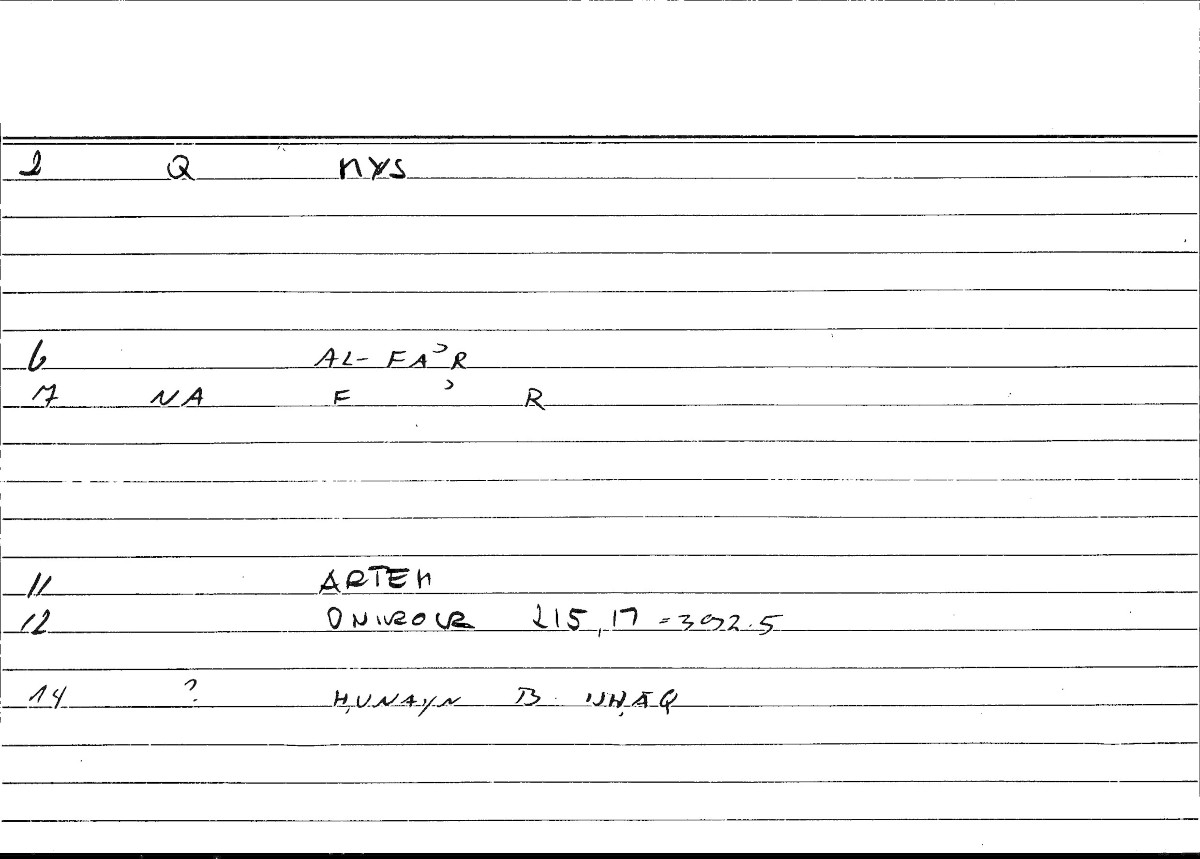 2 Q MYS
6 AL- FAʾR
7 NA F ʾ R
11 ARTEM
12 ONIROCR 215,17 = 392.5
14 ? ḤUNAYN B. ISḤĀQ